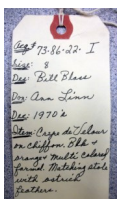 Acq# 73-86-22- I
Size: 8
Des: Bill Blass
Don: Ann Linn
Date: 1970's
Item: Carpe de Velour
on chiffon. Blk +
orange + multi colored
formal. Matching stole
with ostrich
feathers.